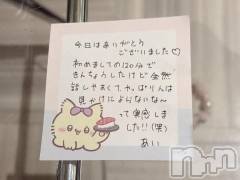 今日はありがとう
ございました♡
初めましての120分で
きんちょうしたけど全然
話しやすくて、やっぱり人は
見かけによらないな〜
って実感しま
した!!(笑)
あい